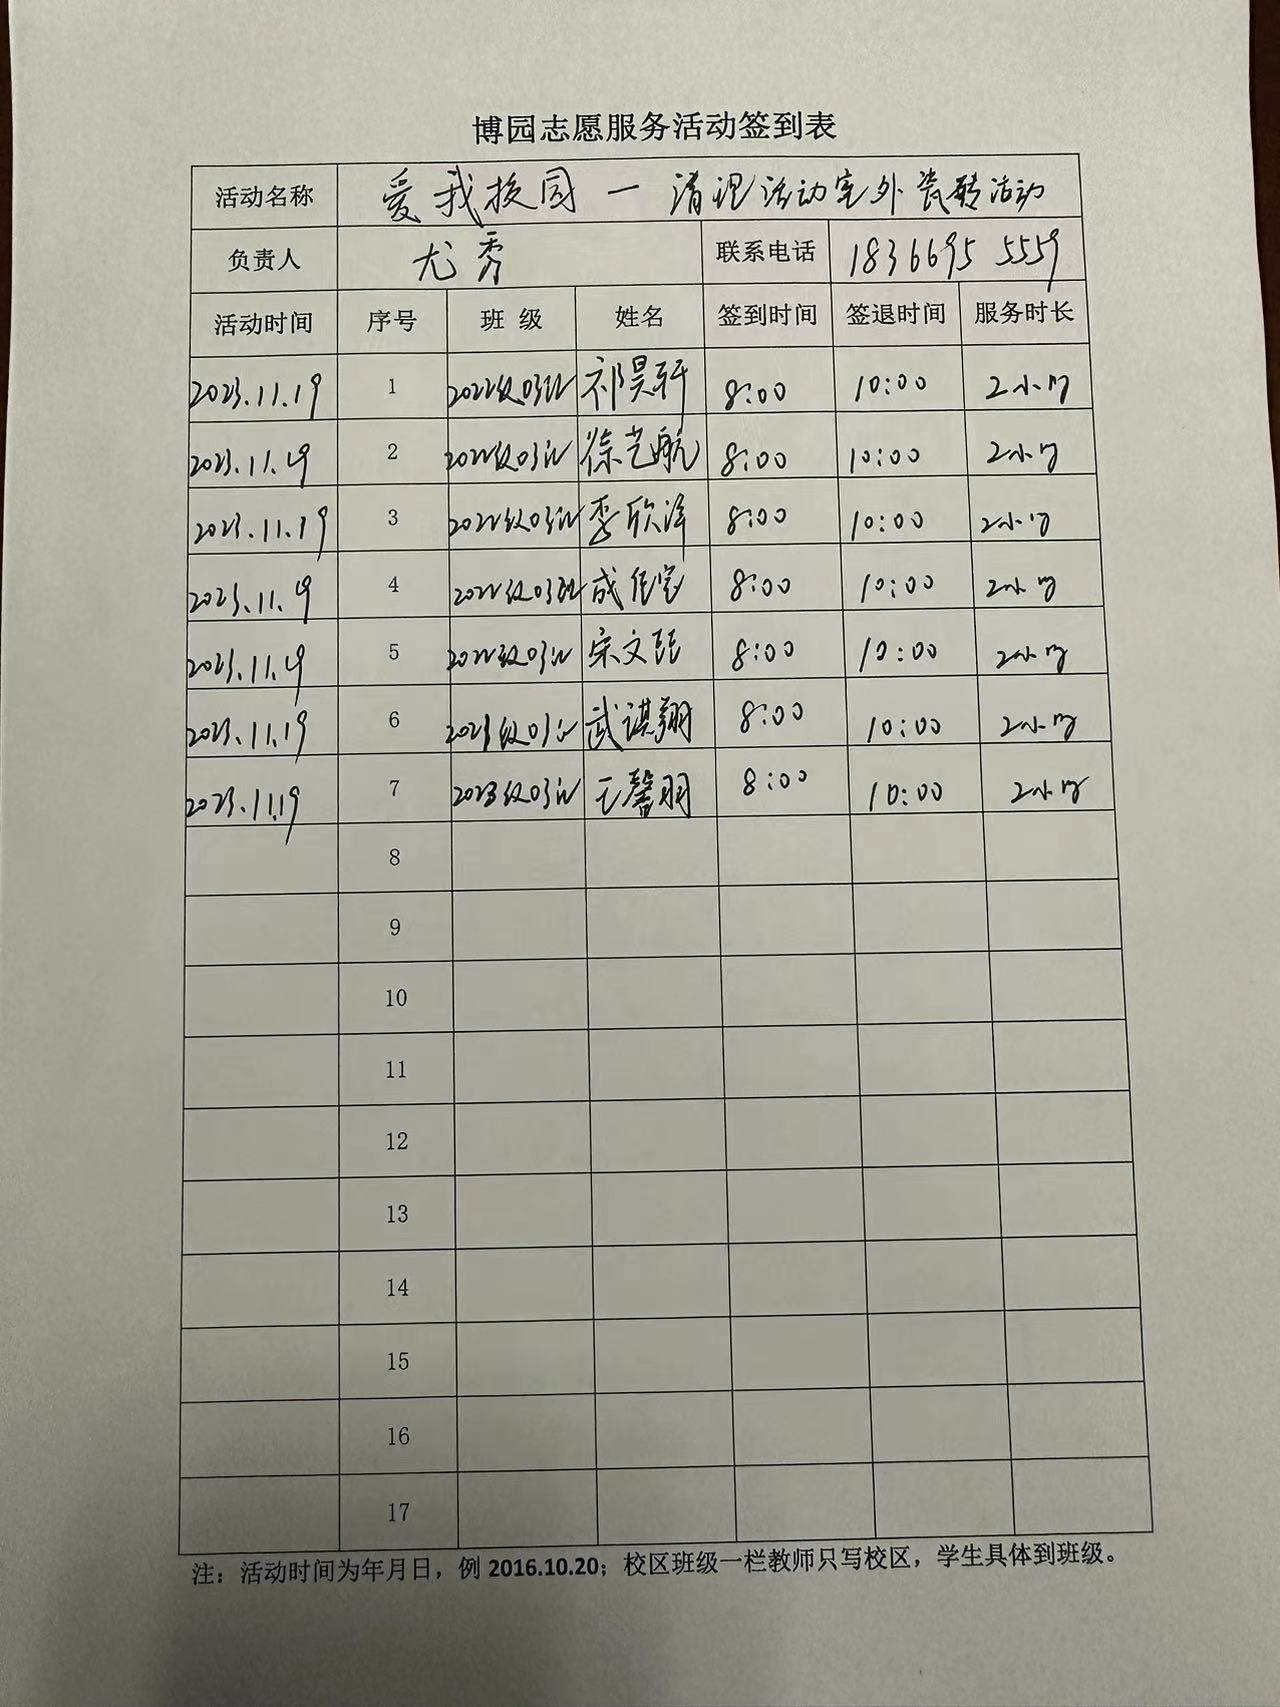 博园志愿服务活动签到表
活动名称 爱我校园一清理活动室外瓷砖活动
负责人 尤秀 联系电话 18366955559
活动时间 序号 班级 姓名 签到时间 签退时间 服务时长
2023.11.19 1 2022级03班 祁昊轩 8:00 10:00 2小时
2023.11.19 2 2022级03班 徐艺航 8:00 10:00 2小时
2023.11.19 3 2022级03班 李欣洋 8:00 10:00 2小时
2023.11.19 4 2022级03班 成 8:00 10:00 2小时
2023.11.19 5 2022级03班 宋文 8:00 10:00 2小时
2023.11.19 6 2023级03班 武祺翔 8:00 10:00 2小时
2023.11.19 7 2023级03班 馨羽 8:00 10:00 2小时
8
9
10
11
12
13
14
15
16
17
注：活动时间为年月日，例 2016.10.20；校区班级一栏教师只写校区，学生具体到班级。